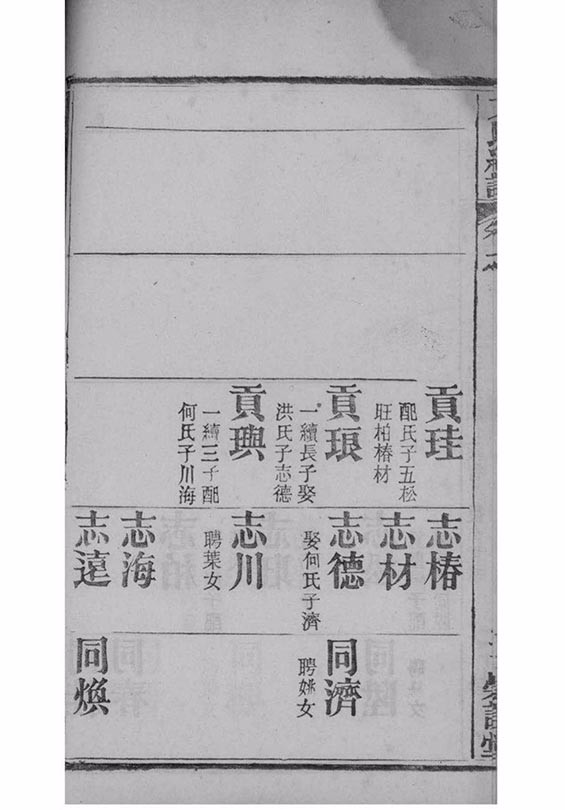 貢珪
配氏子五松
旺柏椿材
貢琅
一續長子娶
洪氏子志德
貢璵
一續三子配
何氏子川海
志椿
志材
志德
娶何氏子濟
志川
聘葉女
志海
志遠
同濟
聘姚女
同煥